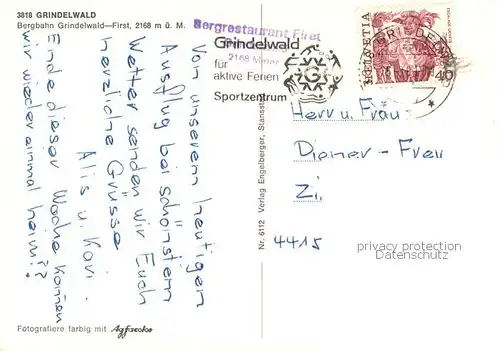 3818 GRINDELWALD
Bergbahn Grindelwald—First, 2168 m ü. M.
Bergrestaurant First
2168 Meter
Grindelwald
für
aktive Ferien
Sportzentrum
G
HELVETIA
40
Von unserem heutigen
Ausflug bei schönstem
Wetter senden wir Euch
herzliche Grüsse
Alis u. Kari.
Ende dieser Woche kommen
wir wieder einmal heim!!
Herr u. Frau
Diener - Frey
Zi.
4415
privacy protection
Datenschutz
Nr. 6112 Verlag Engelberger, Stansstad
Fotografiere farbig mit Agfacolor